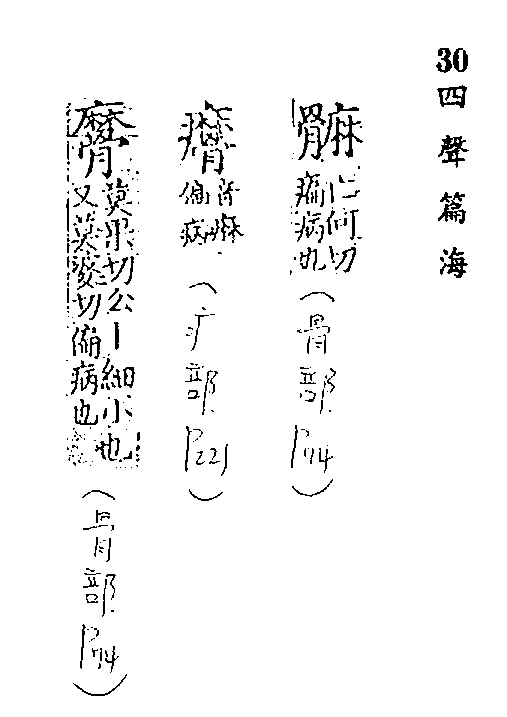 30 四聲篇海
亡何切
痛病也
(骨部 P74)
音麻
偏病
(疒部 P221)
髍 莫果切公丨細小也
又莫婆切偏病也
(骨部 P74)